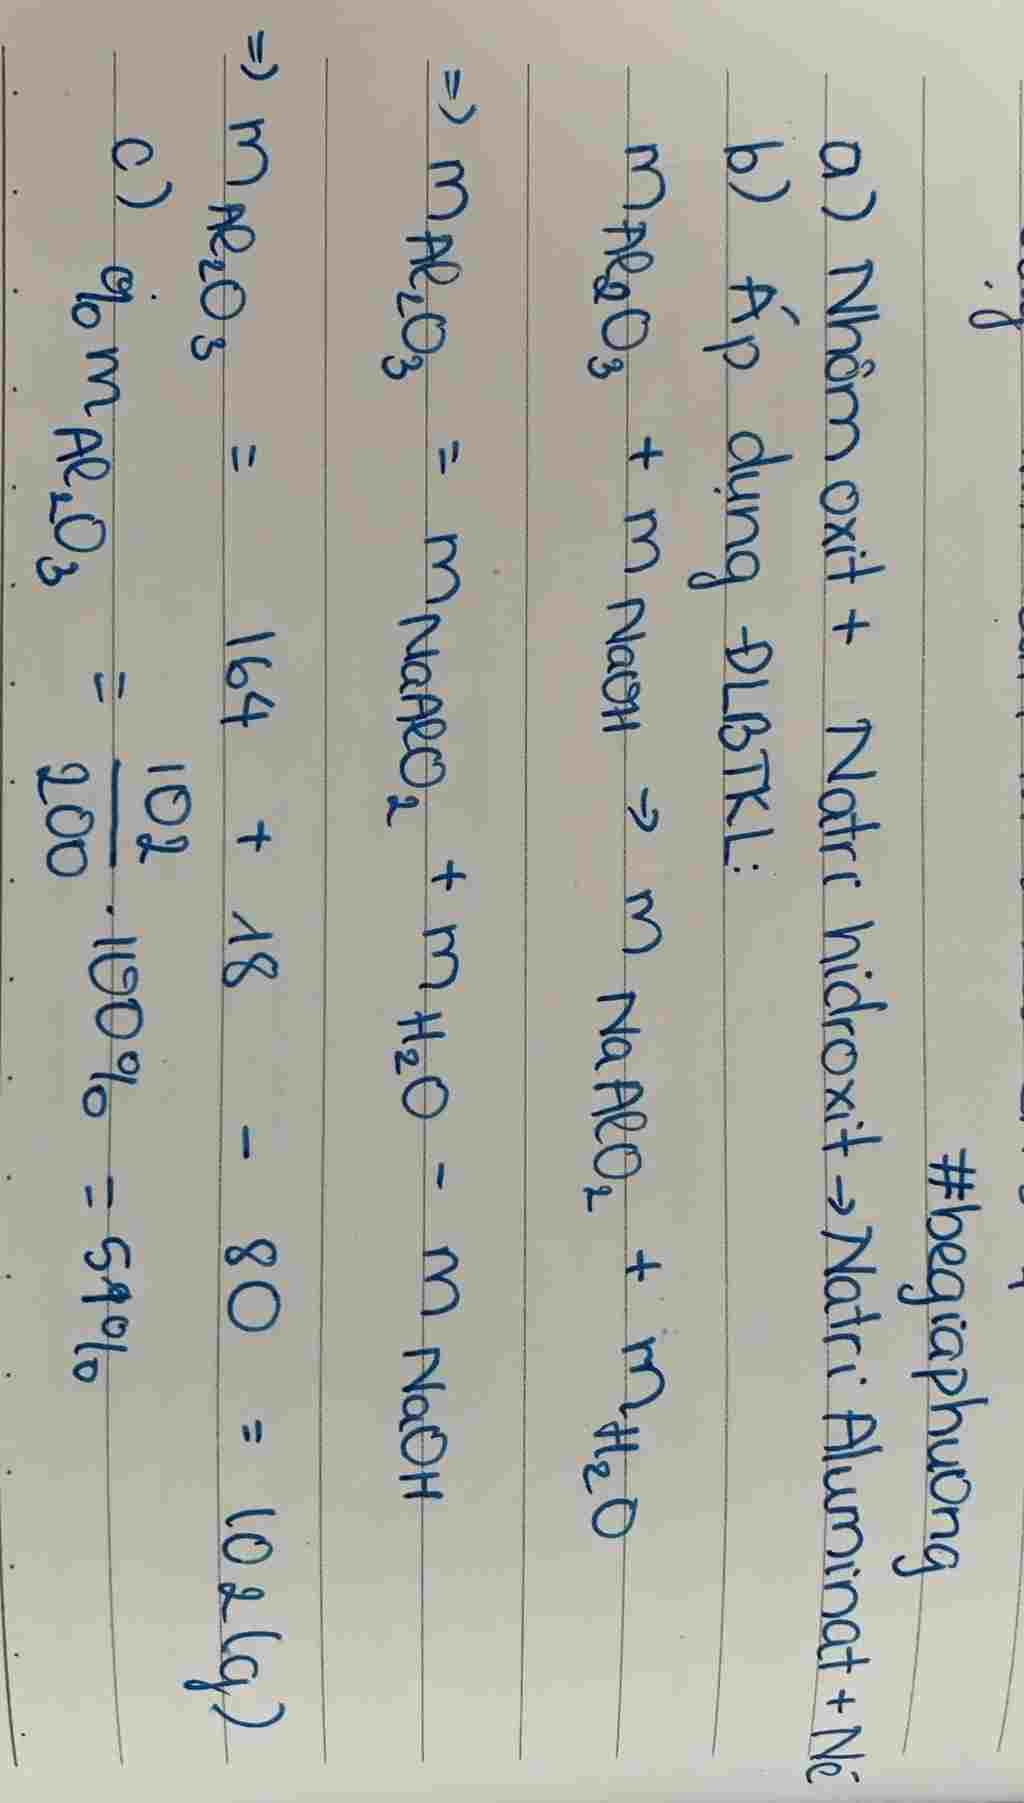 #begiaphuong
a) Nhôm oxit + Natri hidroxit → Natri Aluminat + Nc
b) Áp dụng ĐLBTKL:
mAl2O3 + mNaOH → mNaAlO2 + mH2O
=> mAl2O3 = mNaAlO2 + mH2O - mNaOH
=> mAl2O3 = 164 + 18 - 80 = 102 (g)
c) %mAl2O3 = 102/200 . 100% = 51%